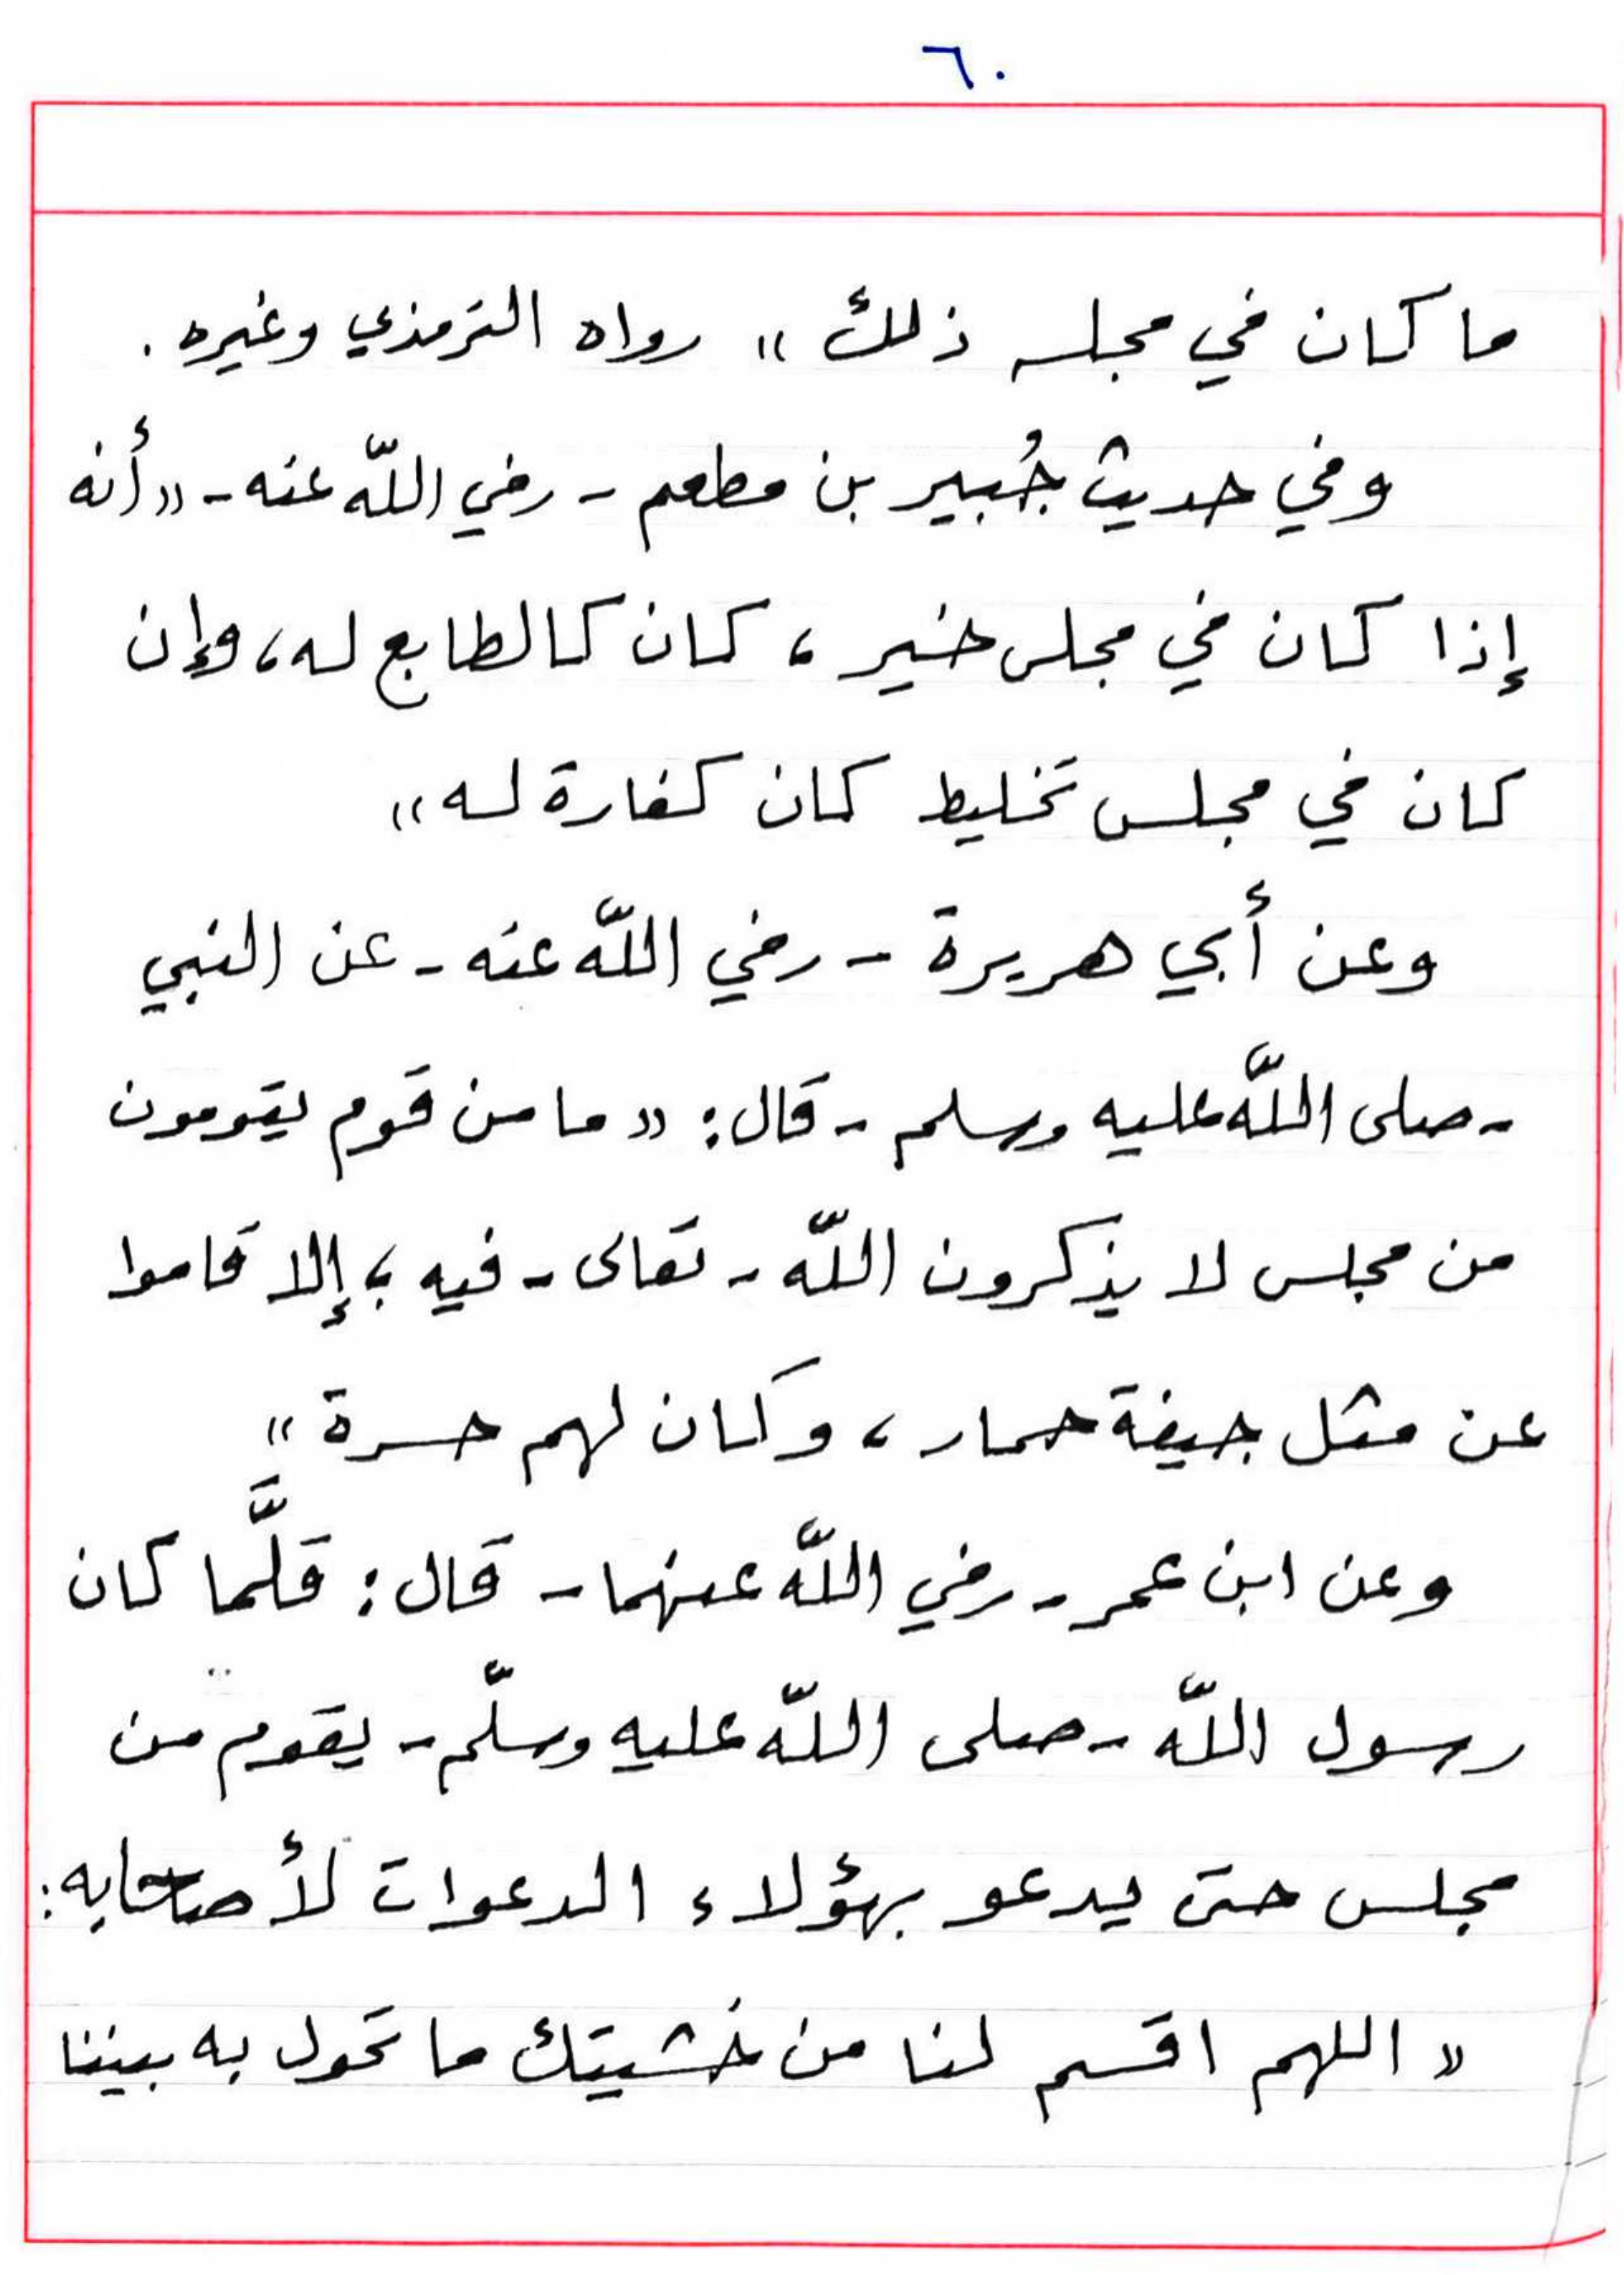 ٦٠
ما كان في مجلسه ذلك» رواه الترمذي وغيره.
وفي حديث جُبير بن مطعم - رضي اللّه عنه - «أنه
إذا كان في مجلس خير، كان كالطابع له، وإن
كان في مجلس تخليط كان كفارة له»
وعن أبي هريرة - رضي اللّه عنه - عن النبي
- صلى اللّه عليه وسلم - قال: «ما من قوم يقومون
من مجلس لا يذكرون اللّه - تعالى - فيه؛ إلا قاموا
عن مثل جيفة حمار، وكان لهم حسرة»
وعن ابن عمر - رضي اللّه عنهما - قال: قلَّما كان
رسول اللّه - صلى اللّه عليه وسلّم - يقوم من
مجلس حتى يدعو بهؤلاء الدعوات لأصحابه:
«اللهم اقسم لنا من خشيتك ما تحول به بيننا